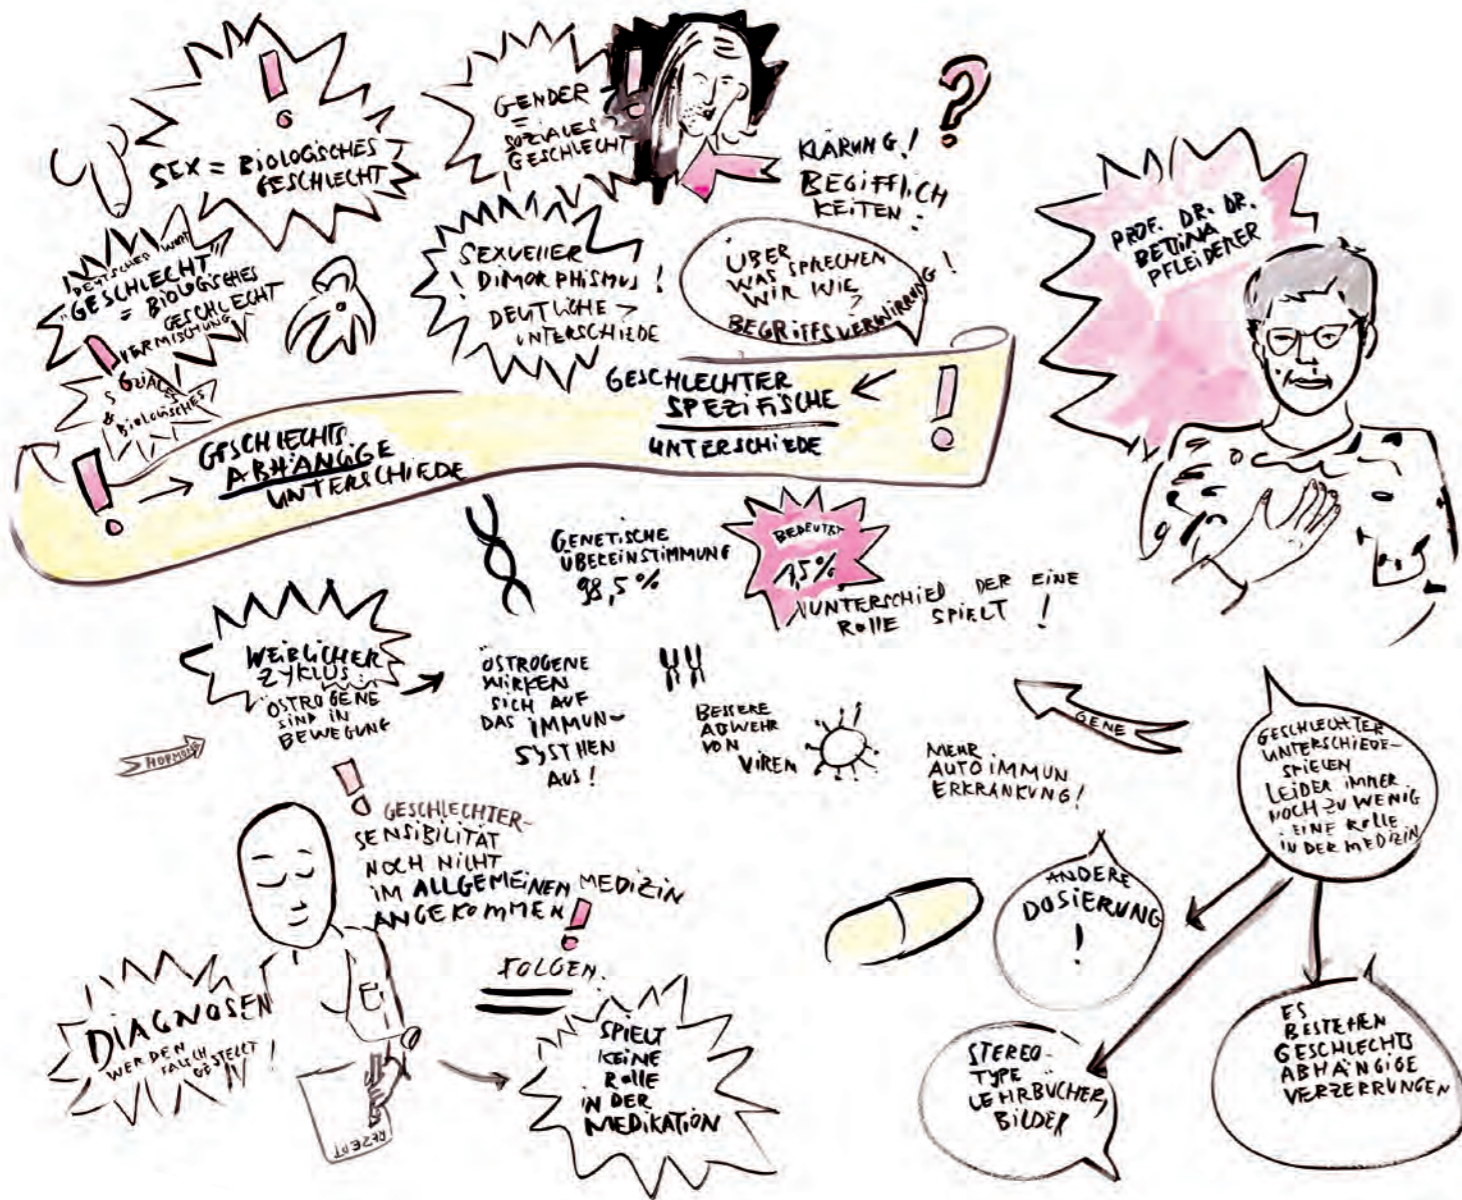 SEX = BIOLOGISCHES
GESCHLECHT
GENDER
=
SOZIALES
GESCHLECHT
KLÄRUNG!
BEGIFFLICH
KEITEN:
PROF. DR. DR.
BETTINA
PFLEIDERER
DEUTSCHES WORT
"GESCHLECHT"
= BIOLOGISCHES
GESCHLECHT
VERMISCHUNG
SOZIALES
& BIOLOGISCHES
SEXUELLER
! DIMORPHISMUS !
DEUTLICHE
UNTERSCHIEDE
ÜBER
WAS SPRECHEN
WIR WIE
?
BEGRIFFSVERWIRRUNG!
GESCHLECHTER
SPEZIFISCHE
UNTERSCHIEDE
GESCHLECHTS
ABHÄNGIGE
UNTERSCHIEDE
GENETISCHE
ÜBEREINSTIMMUNG
98,5%
BEDEUTET
1,5%
UNTERSCHIED DER EINE
ROLLE SPIELT !
WEIBLICHER
ZYKLUS:
ÖSTROGENE
SIND IN
BEWEGUNG
HORMONE
ÖSTROGENE
WIRKEN
SICH AUF
DAS IMMUN-
SYSTHEN
AUS!
BESSERE
ABWEHR
VON
VIREN
MEHR
AUTOIMMUN
ERKRANKUNG!
GENE
GESCHLECHTER
UNTERSCHIEDE
SPIELEN
LEIDER IMMER
NOCH ZU WENIG
EINE ROLLE
IN DER MEDIZIN
GESCHLECHTER-
SENSIBILITÄT
NOCH NICHT
IM ALLGEMEINEN MEDIZIN
ANGEKOMMEN!
FOLGEN:
DIAGNOSEN
WERDEN
FALSCH
GESTELLT!
REZEPT
SPIELT
KEINE
ROLLE
IN DER
MEDIKATION
ANDERE
DOSIERUNG
!
STEREO-
TYPE
LEHRBÜCHER,
BILDER
ES
BESTEHEN
GESCHLECHTS
ABHÄNGIGE
VERZERRUNGEN